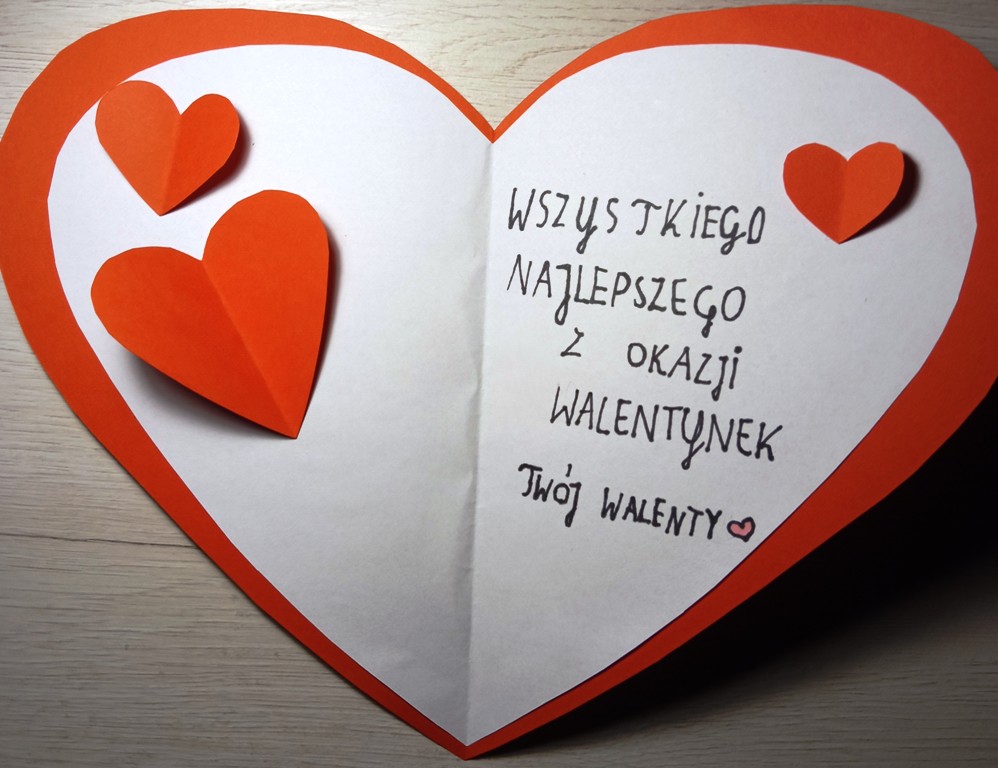 WSZYSTKIEGO
NAJLEPSZEGO
Z OKAZJI
WALENTYNEK
TWÓJ WALENTY